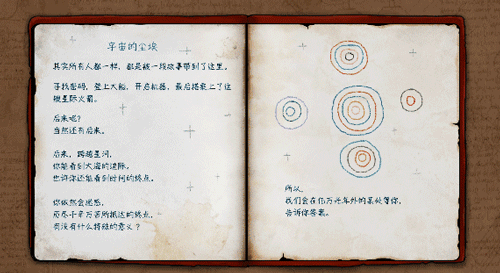 宇宙的尘埃
其实所有人都一样，都是被一段故事带到了这里。
寻找密码，登上大船，开启机器，最后搭乘上了这
艘星际火箭。
后来呢？
当然还有后来。
后来，跨越星河，
你能看到大海的边际。
也许你还能看到时间的终点。
你依然会迷惑，
历尽千辛万苦所抵达的终点，
有没有什么特殊的意义？
所以，
我们会在亿万光年外的某处等你，
告诉你答案。